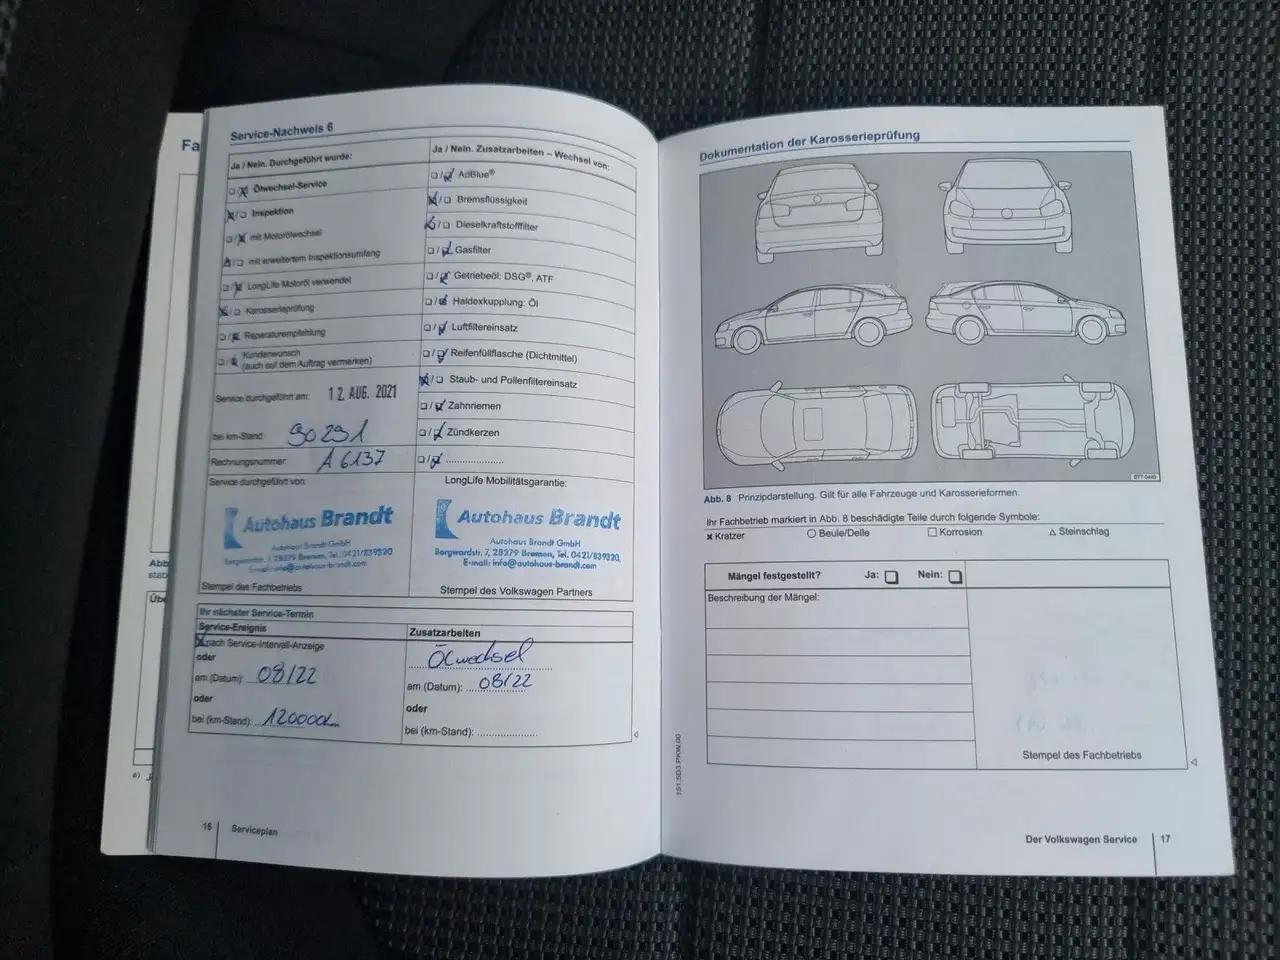 Fa
Service-Nachweis 6
Ja / Nein. Durchgeführt wurde:
Ölwechsel-Service
Inspektion
mit Motorölwechsel
mit erweitertem Inspektionsumfang
LongLife Motoröl verwendet
Karosserieprüfung
Reparaturempfehlung
Kundenwunsch
(auch auf dem Auftrag vermerken)
Service durchgeführt am: 12. AUG. 2021
bei km-Stand: 90291
Rechnungsnummer: A6137
Service durchgeführt von:
Autohaus Brandt
Autohaus Brandt GmbH
Borgwardstr. 7, 28279 Bremen, Tel. 0421/839320
E-mail: info@autohaus-brandt.com
Stempel des Fachbetriebs
Ja / Nein. Zusatzarbeiten – Wechsel von:
AdBlue®
Bremsflüssigkeit
Dieselkraftstofffilter
Gasfilter
Getriebeöl: DSG®, ATF
Haldexkupplung: Öl
Luftfiltereinsatz
Reifenfüllflasche (Dichtmittel)
Staub- und Pollenfiltereinsatz
Zahnriemen
Zündkerzen
LongLife Mobilitätsgarantie:
Autohaus Brandt
Autohaus Brandt GmbH
Borgwardstr. 7, 28279 Bremen, Tel. 0421/839320,
E-mail: info@autohaus-brandt.com
Stempel des Volkswagen Partners
Ihr nächster Service-Termin
Service-Ereignis
nach Service-Intervall-Anzeige
oder
am (Datum): 08/22
oder
bei (km-Stand): 120000km
Zusatzarbeiten
Ölwechsel
am (Datum): 08/22
oder
bei (km-Stand):
16 Serviceplan
Abb
stab
Übe
a) J
Dokumentation der Karosserieprüfung
BTT-0449
Abb. 8 Prinzipdarstellung. Gilt für alle Fahrzeuge und Karosserieformen.
Ihr Fachbetrieb markiert in Abb. 8 beschädigte Teile durch folgende Symbole:
x Kratzer ○ Beule/Delle □ Korrosion △ Steinschlag
Mängel festgestellt? Ja: Nein:
Beschreibung der Mängel:
Stempel des Fachbetriebs
151.5D3.PKW.00
Der Volkswagen Service 17